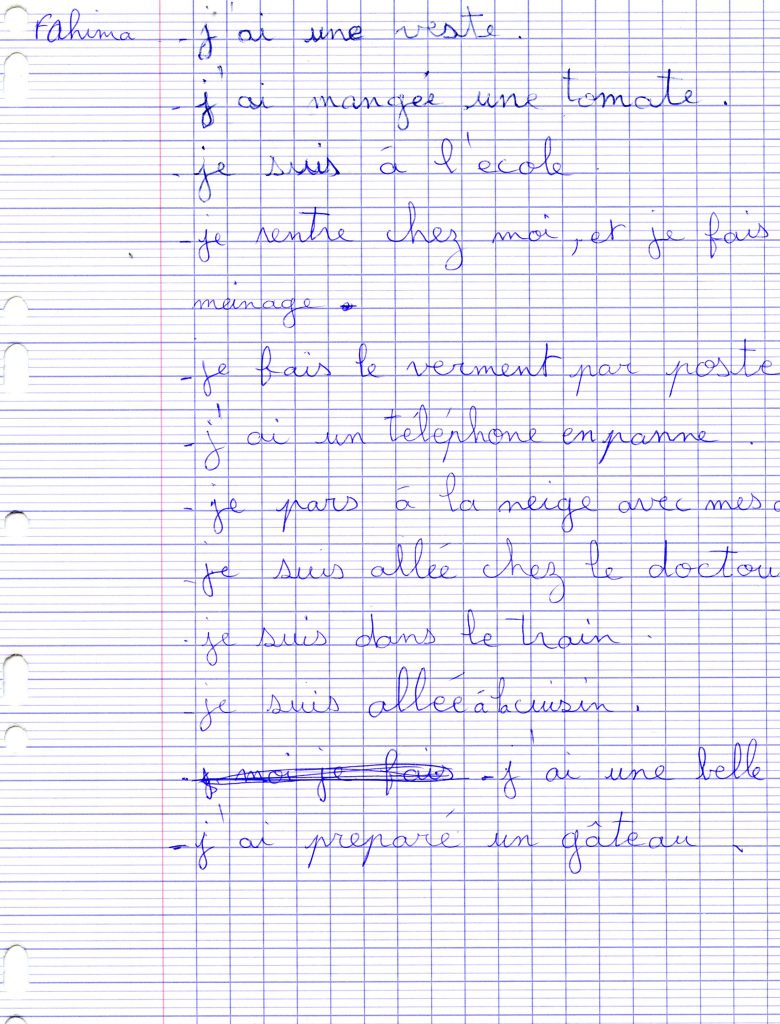 Fahima - j'ai une veste.
- j'ai mangée une tomate.
- je suis à l'école.
- je rentre chez moi, et je fais
meinage.
- je fais le verment par poste
- j'ai un téléphone en panne.
- je pars à la neige avec mes
- je suis alléé chez le doctou
- je suis dans le train.
- je suis alléé à la cuisin.
- moi je fais - j'ai une belle
- j'ai preparé un gâteau.